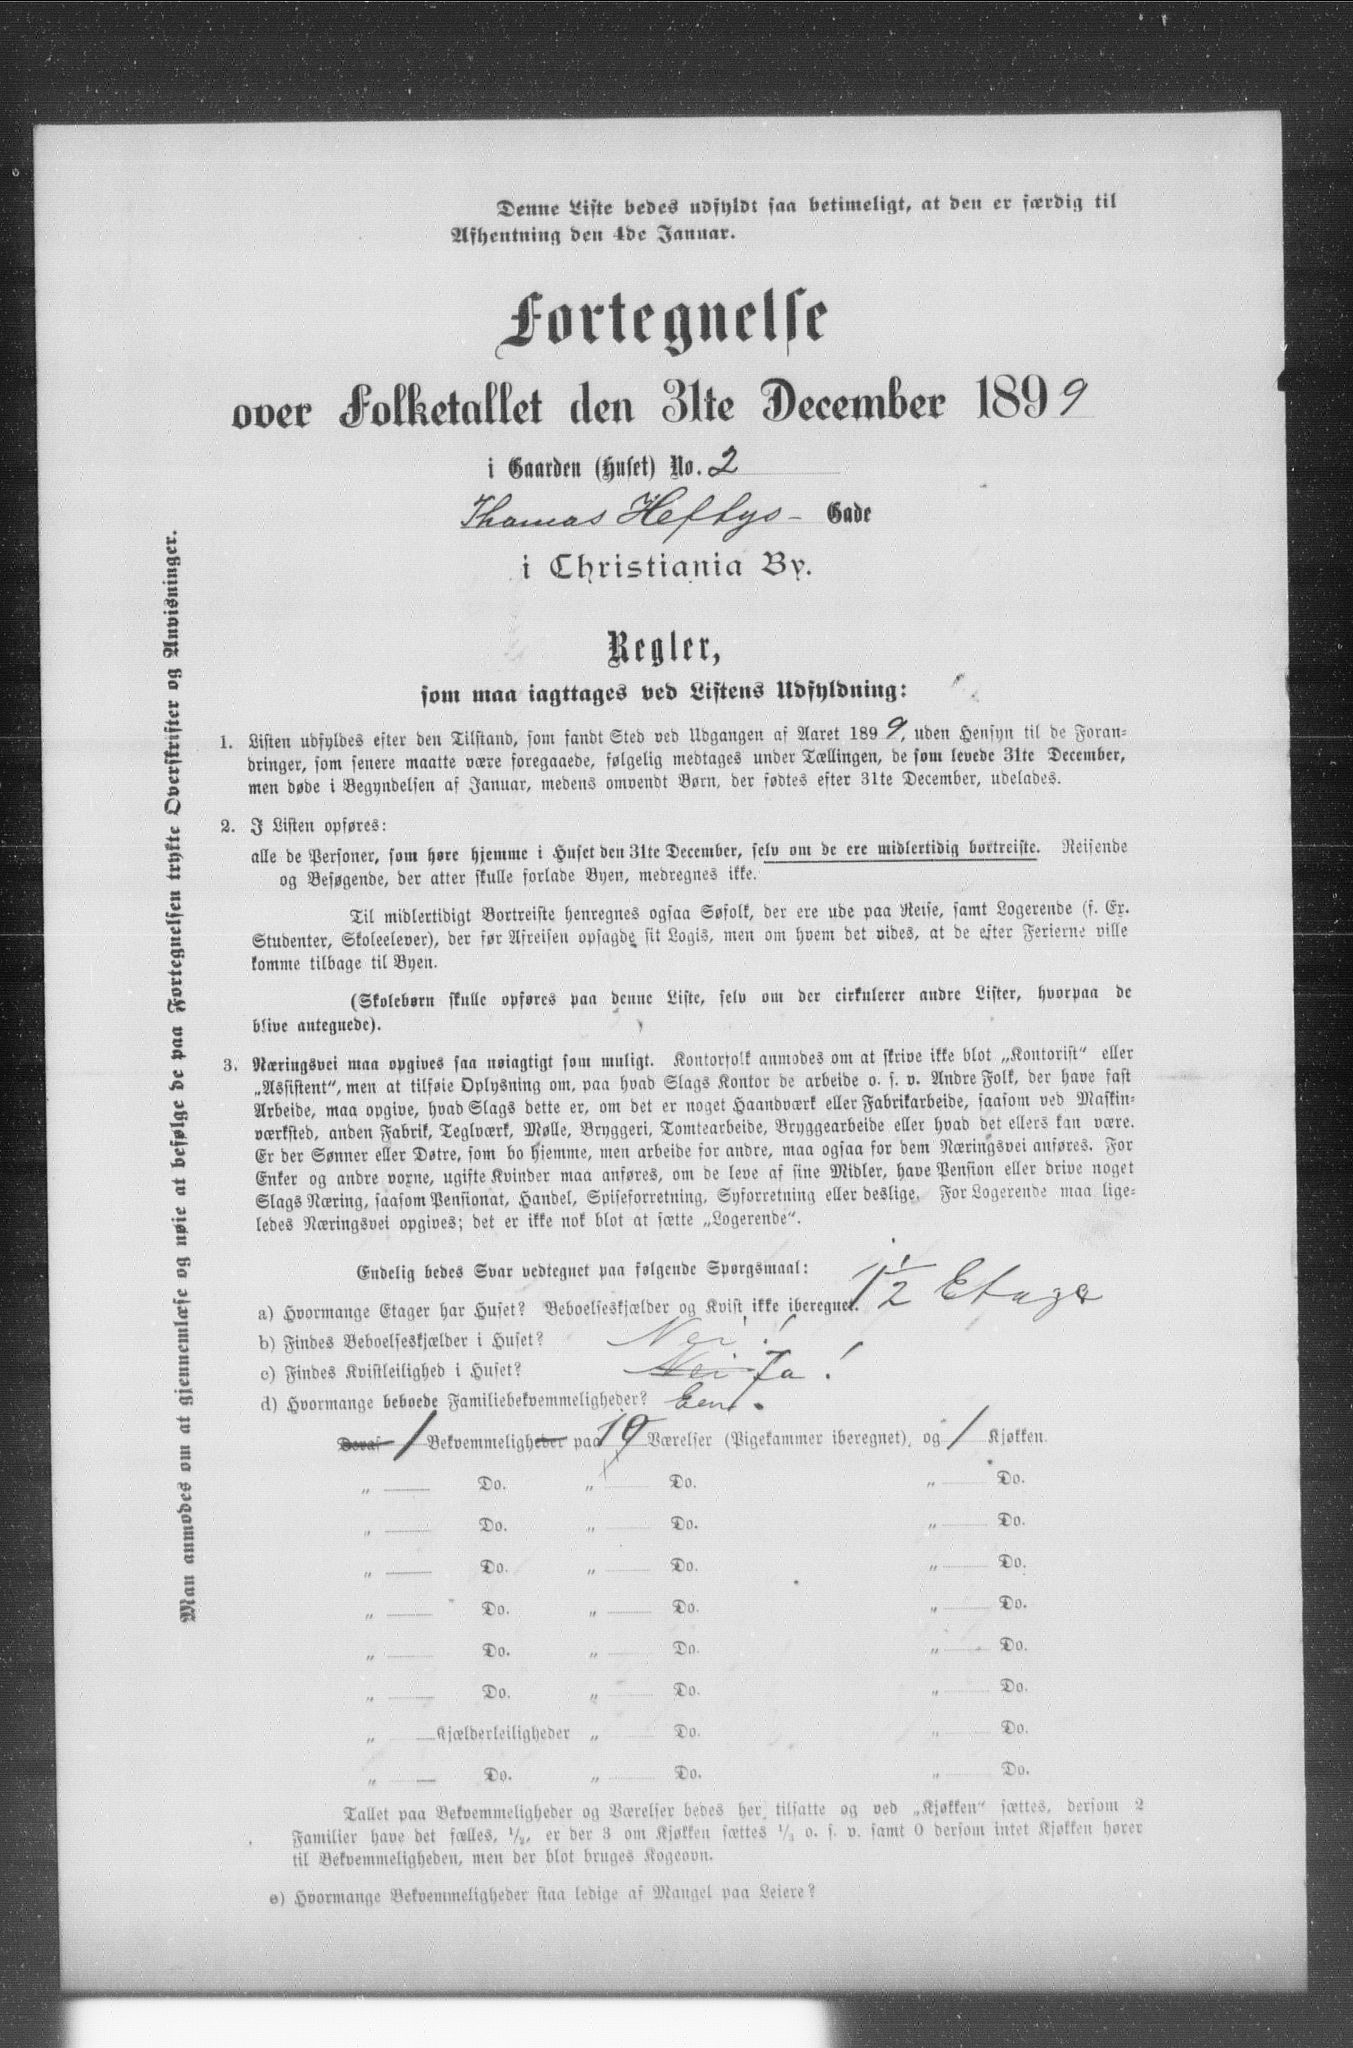 Denne Liste bedes udfyldt saa betimeligt, at den er færdig til
Afhentning den 4de Januar.
Fortegnelse
over Folketallet den 31te December 1899
i Gaarden (Huset) No. 2
Thomas Heftys- Gade
i Christiania By.
Regler,
som maa iagttages ved Listens Udfyldning:
1. Listen udfyldes efter den Tilstand, som fandt Sted ved Udgangen af Aaret 1899, uden Hensyn til de Foran-
dringer, som senere maatte være foregaaede, følgelig medtages under Tællingen, de som levede 31te December,
men døde i Begyndelsen af Januar, medens omvendt Børn, der fødtes efter 31te December, udelades.
2. I Listen opføres:
alle de Personer, som høre hjemme i Huset den 31te December, selv om de ere midlertidig bortreiste. Reisende
og Besøgende, der atter skulle forlade Byen, medregnes ikke.
Til midlertidigt Bortreiste henregnes ogsaa Søfolk, der ere ude paa Reise, samt Logerende (f. Ex.
Studenter, Skoleelever), der før Afreisen opsagde sit Logis, men om hvem det vides, at de efter Ferierne ville
komme tilbage til Byen.
(Skolebørn skulle opføres paa denne Liste, selv om der cirkulerer andre Lister, hvorpaa de
blive antegnede).
3. Næringsvei maa opgives saa nøiagtigt som muligt. Kontorfolk anmodes om at skrive ikke blot „Kontorist" eller
„Assistent", men at tilføie Oplysning om, paa hvad Slags Kontor de arbeide o. s. v. Andre Folk, der have fast
Arbeide, maa opgive, hvad Slags dette er, om det er noget Haandværk eller Fabrikarbeide, saasom ved Maskin-
værksted, anden Fabrik, Teglværk, Mølle, Bryggeri, Tomtearbeide, Bryggearbeide eller hvad det ellers kan være.
Er der Sønner eller Døtre, som bo hjemme, men arbeide for andre, maa ogsaa for dem Næringsvei anføres. For
Enker og andre vorne, ugifte Kvinder maa anføres, om de leve af sine Midler, have Pension eller drive noget
Slags Næring, saasom Pensionat, Handel, Spiseforretning, Syforretning eller deslige. For Logerende maa lige-
ledes Næringsvei opgives; det er ikke nok blot at sætte „Logerende".
Endelig bedes Svar vedtegnet paa følgende Spørgsmaal:
a) Hvormange Etager har Huset? Beboelseskjælder og Kvist ikke iberegnet. 1 1/2 Etage
b) Findes Beboelseskjælder i Huset? Nei!
c) Findes Kvistleilighed i Huset? Nei Ja!
d) Hvormange beboede Familiebekvemmeligheder? Een.
Deraf 1 Bekvemmeligheder paa 19 Værelser (Pigekammer iberegnet), og 1 Kjøkken.
„ Do. „ Do. „ Do.
„ Do. „ Do. „ Do.
„ Do. „ Do. „ Do.
„ Do. „ Do. „ Do.
„ Do. „ Do. „ Do.
„ Do. „ Do. „ Do.
„ Kjælderleiligheder „ Do. „ Do.
„ Do. „ Do. „ Do.
Tallet paa Bekvemmeligheder og Værelser bedes her tilsatte og ved „Kjøkken" sættes, dersom 2
Familier have det fælles, 1/2, er der 3 om Kjøkken sættes 1/3 o. s. v. samt 0 dersom intet Kjøkken hører
til Bekvemmeligheden, men der blot bruges Kogeovn.
e) Hvormange Bekvemmeligheder staa ledige af Mangel paa Leiere?
Man anmodes om at gjennemlæse og nøie at befølge de paa Fortegnelsen trykte Overskrifter og Anvisninger.